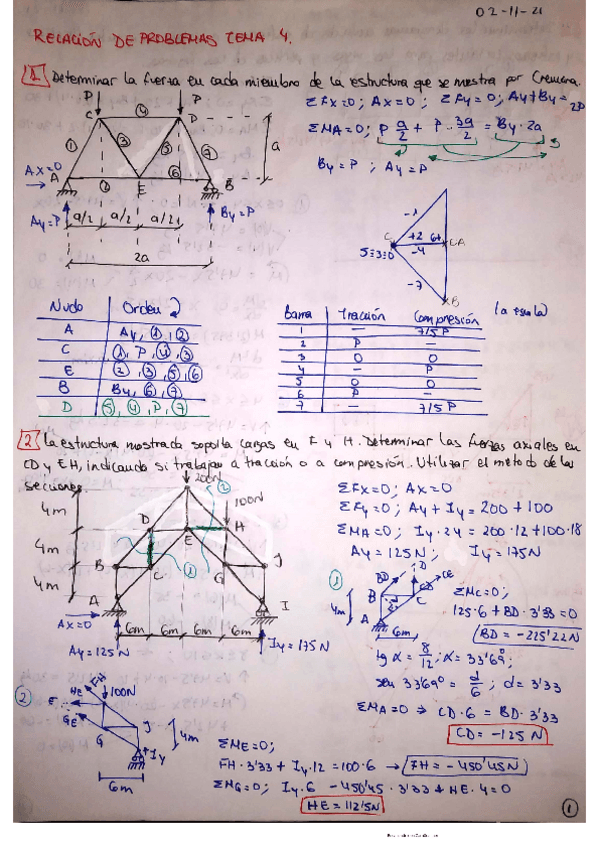 02-11-21
RELACIÓN DE PROBLEMAS TEMA 4.
1 Determinar la fuerza en cada miembro de la estructura que se mostra por Cremona.
ΣFx=0; Ax=0; ΣFy=0; Ay+By=2P
ΣMA=0; P a/2 + P · 3a/2 = By · 2a
By=P; Ay=P
P P
C 4 D
1 3 5 7 a
Ax=0
A 2 E 6 B
Ay=P a/2 a/2 a/2 By=P
2a
-1
C +2 6+ A
5=3=0 -4
-7
B
Nudo Orden
A Ay, 1, 2
C 1, P, 4, 3
E 2, 3, 5, 6
B By, 6, 7
D 5, 4, P, 7
Barra Tracción Compresión (a escala)
1 — 7/5 P
2 P —
3 0 0
4 — P
5 0 0
6 P —
7 — 7/5 P
2 La estructura mostrada soporta cargas en F y H. Determinar las fuerzas axiales en
CD y EH, indicando si trabajan a tracción o a compresión. Utilizar el metodo de las
secciones.
200N
2
100N
4m
D E H
4m
B C 1 G J
4m
A I
Ax=0
6m 6m 6m 6m
Ay=125N Iy=175N
ΣFx=0; Ax=0
ΣFy=0; Ay + Iy = 200 + 100
ΣMA=0; Iy·24 = 200·12+100·18
Ay=125N; Iy=175N
1
BD D CE
B CD
4m C
A
6m
ΣMC=0;
125·6 + BD·3'33=0
BD = -225'22N
tg α = 8/12; α=33'69º;
sen 33'69º = d/6; d=3'33
ΣMA=0 ⇒ CD·6 = BD·3'33
CD=-125N
2
FH
HE 100N
E
GE
G J
4m
Iy
6m
ΣME=0;
FH·3'33 + Iy·12 = 100·6 → FH=-450'45N
ΣMG=0; Iy·6 - 450'45·3'33 + HE·4=0
HE = 112'5N
1